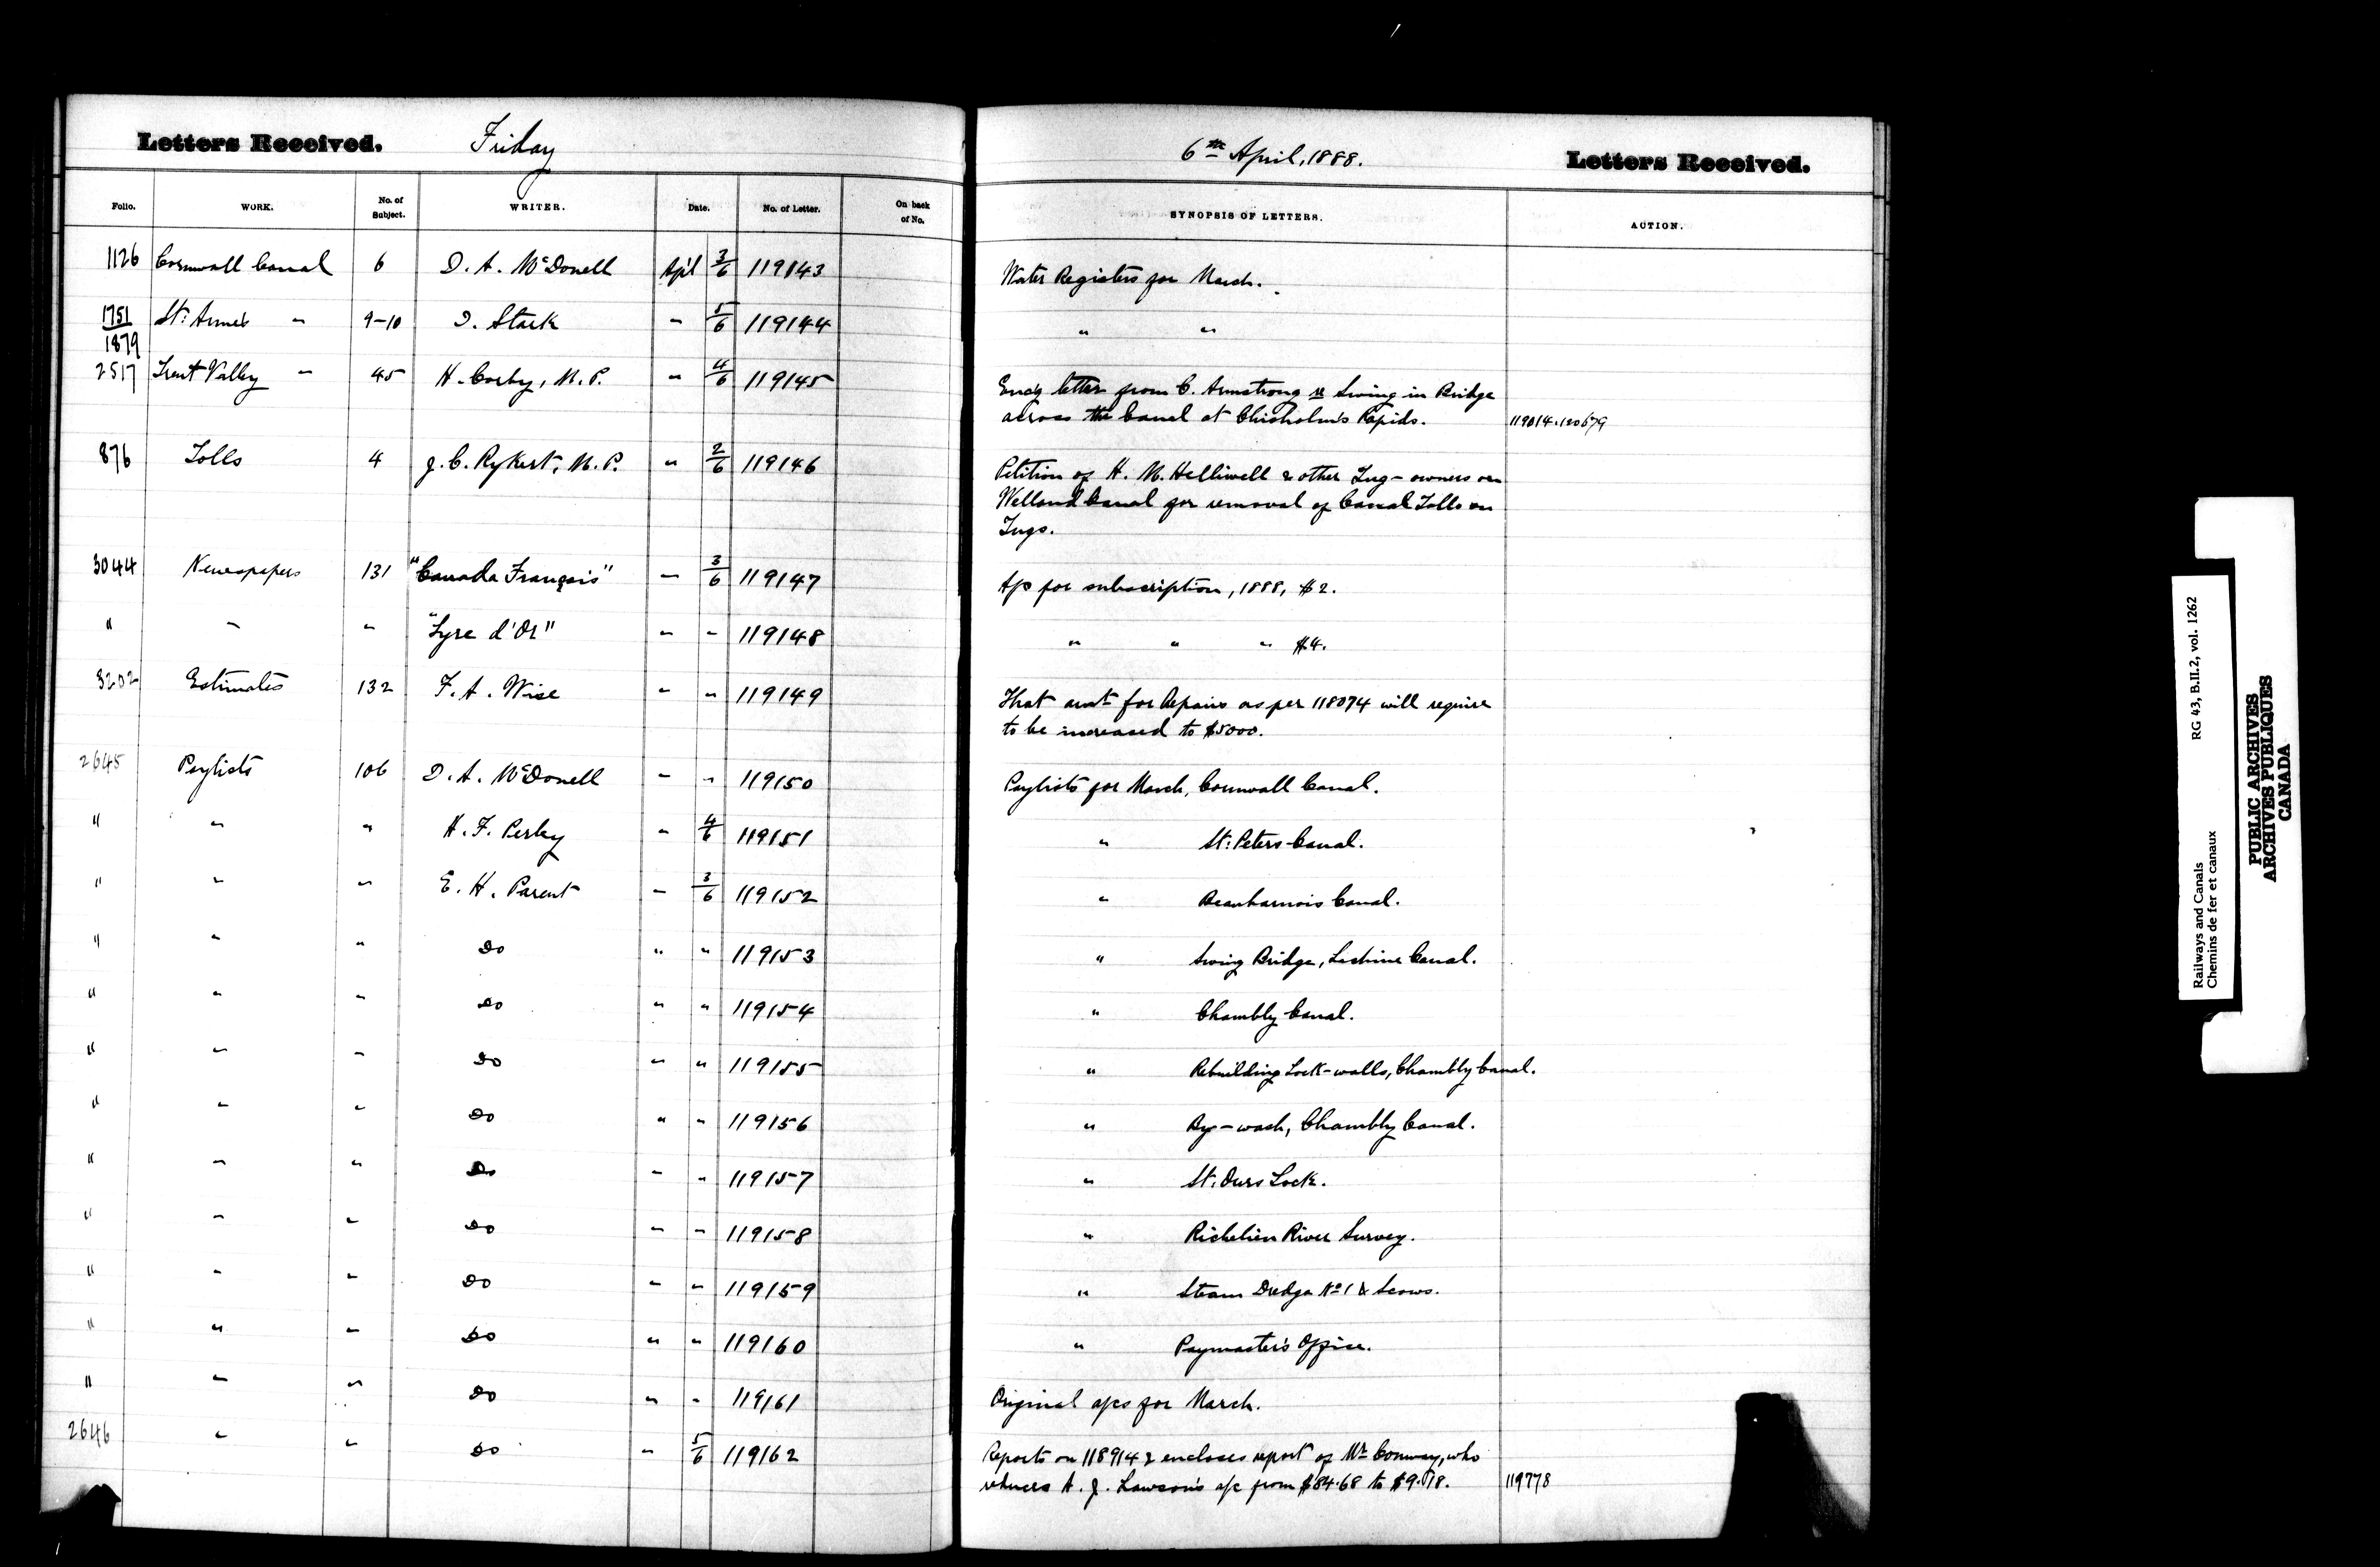 Letters Received. Friday
6th April, 1888. Letters Received.
Folio. WORK. No. of Subject. WRITER. Date. No. of Letter. On back of No. SYNOPSIS OF LETTERS. ACTION.
1126 Cornwall Canal 6 D. A. McDonell Apl 3/6 119143 Water Registers for March.
1751/1879 St: Anne's " 9-10 D. Stark " 5/6 119144 " "
2517 Trent Valley " 45 H. Corby, M.P. " 4/6 119145 Encg letter from C. Armstrong re Swing in Bridge
across the Canal at Chisholm's Rapids. 119014.120679
876 Tolls 4 J. C. Rykert, M.P. " 2/6 119146 Petition of H. M. Helliwell & other Tug-owners on
Welland Canal for removal of Canal Tolls on
Tugs.
3044 Newspapers 131 "Canada Français" " 3/6 119147 A/c for subscription, 1888, $2.
" " " "Lyre d'Or" " " 119148 " " " $4.
3202 Estimates 132 F. A. Wise " " 119149 That amt for Repairs as per 118074 will require
to be increased to $5000.
2645 Paylists 106 D. A. McDonell " " 119150 Paylists for March, Cornwall Canal.
" " " H. F. Perley " 4/6 119151 " St: Peters Canal.
" " " E. H. Parent " 3/6 119152 " Beauharnois Canal.
" " " Do " " 119153 " Swing Bridge, Lachine Canal.
" " " Do " " 119154 " Chambly Canal.
" " " Do " " 119155 " Rebuilding Lock-walls, Chambly Canal.
" " " Do " " 119156 " Bye-wash, Chambly Canal.
" " " Do " " 119157 " St. Ours Lock.
" " " Do " " 119158 " Richelieu River Survey.
" " " Do " " 119159 " Steam Dredge No 1 & Scows.
" " " Do " " 119160 " Paymaster's Office.
" " " Do " " 119161 Original a/cs for March.
2646 " " Do " 5/6 119162 Reports on 118914 & encloses report of Mr Conway, who
reduces A. J. Lawson's a/c from $84.68 to $9.18. 119778
Railways and Canals RG 43, B.II.2, vol. 1262
Chemins de fer et canaux
PUBLIC ARCHIVES
ARCHIVES PUBLIQUES
CANADA